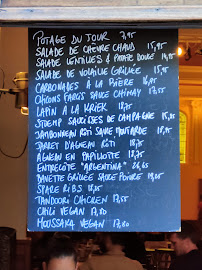 POTAGE DU JOUR 7,95
SALADE DE CHÈVRE CHAUD 15,95
SALADE LENTILLES & PATATE DOUCE
SALADE DE VOLAILLE GRILLÉE 15,95
CARBONADES À LA BIÈRE
OIGNONS FARCIS SAUCE CHIMAY 17,55
LAPIN À LA KRIEK 18,75
STOEMP SAUCISSES DE CAMPAGNE 15,95
JAMBONNEAU RÔTI SAUCE MOUTARDE
JARRET D'AGNEAU RÔTI 18,75
AGNEAU EN PAPILLOTTE 18,75
ENTRECÔTE "ARGENTINA"
BAVETTE GRILLÉE SAUCE POIVRE
SPARE RIBS
TANDOORI CHICKEN 17,55
CHILI VEGAN 17,80
MOUSSAKA VEGAN 17,80